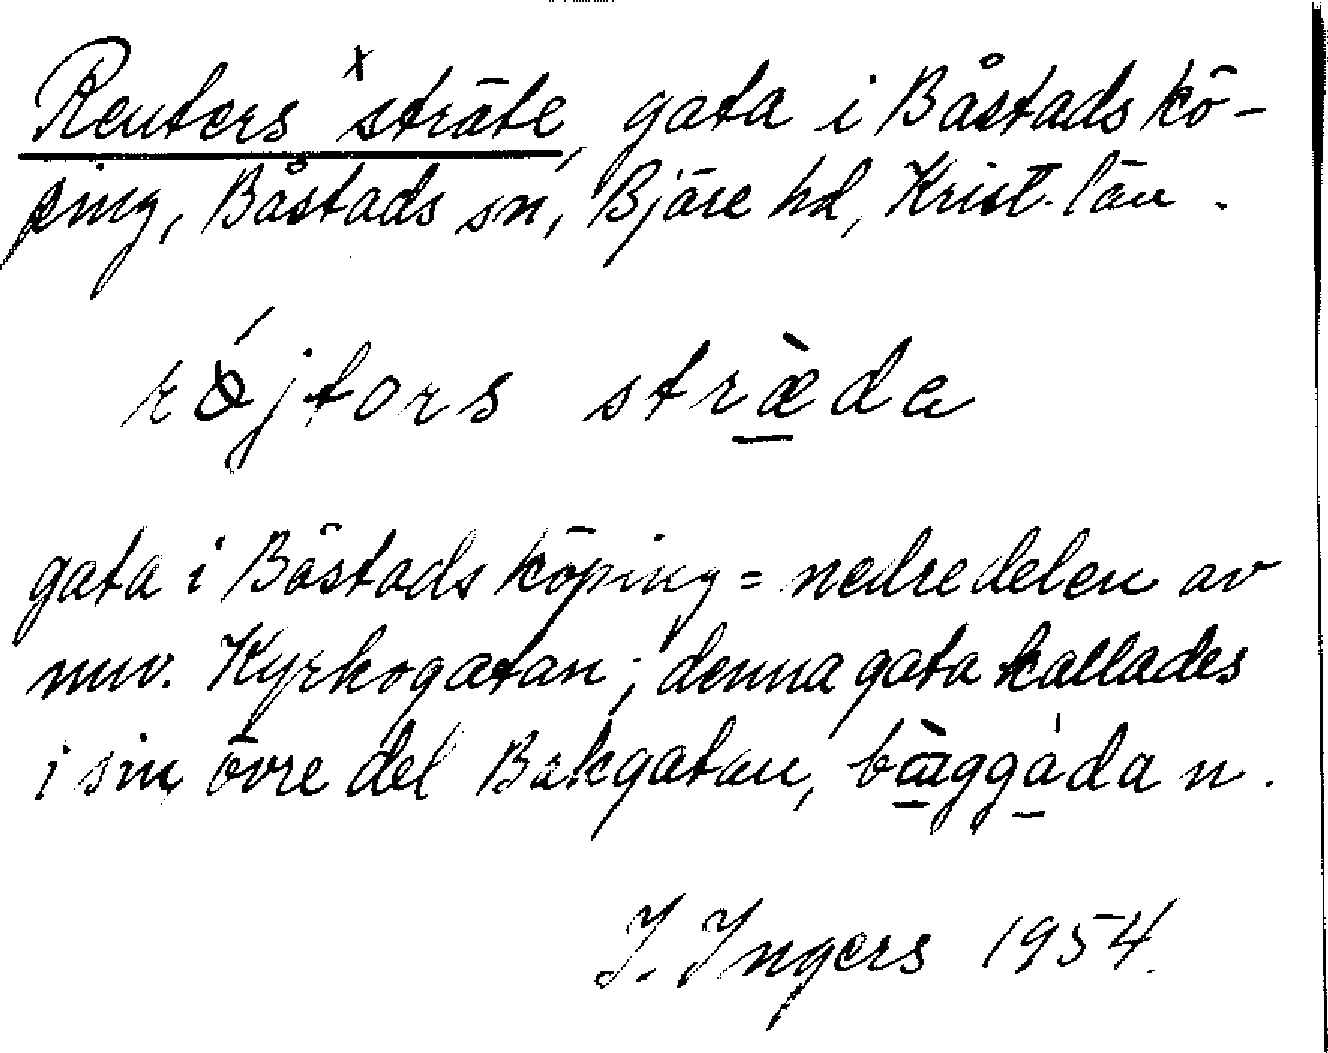 Reuters ˣsträte, gata i Båstads kö-
ping, Båstads sn, Bjäre hd, Krist. län.
röjtors stræ̀da
gata i Båstads köping = nedre delen av
nuv. Kyrkogatan; denna gata kallades
i sin övre del Bakgatan, bàggádan.
I. Ingers 1954.